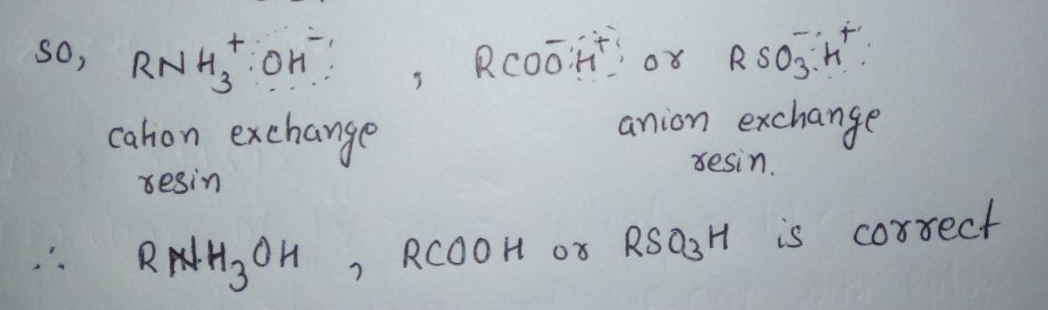 so, RNH₃⁺ OH⁻ , RCOO⁻H⁺ or RSO₃⁻H⁺
cation exchange resin
anion exchange resin.
∴ RNH₃OH , RCOOH or RSO₃H is correct